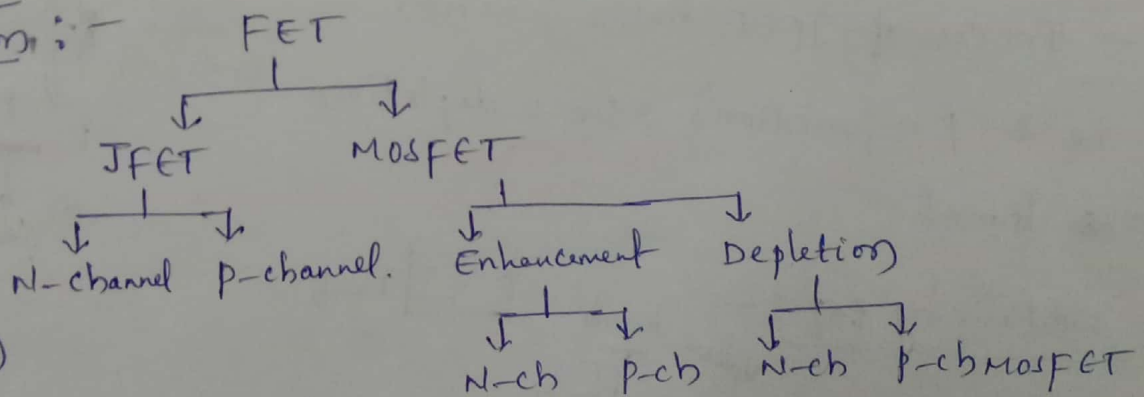 FET
JFET MOSFET
N-channel P-channel. Enhancement Depletion
N-ch P-ch N-ch P-ch MOSFET